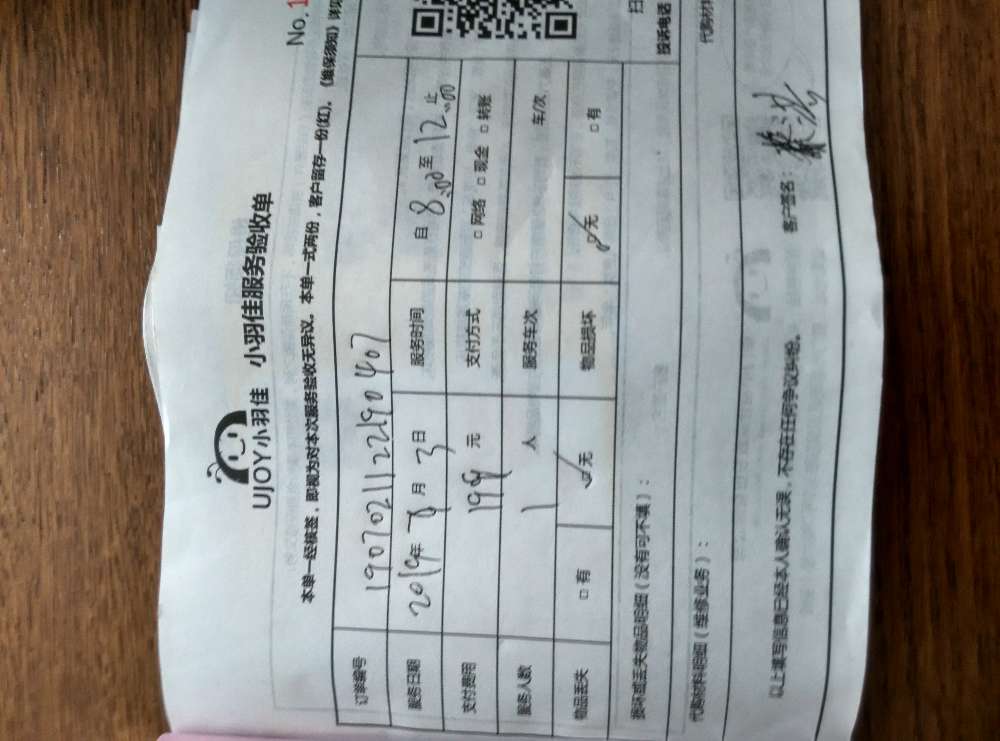 No.1
UJOY小羽佳 小羽佳服务验收单
本单一经核签，即视为对本次服务验收无异议。本单一式两份，客户留存一份(红)。《维保须知》详见
订单编号 1907021122190407
服务日期 2019年 7月 3日 服务时间 自 8:00至 12:00止
支付费用 199 元 支付方式 □ 网络 □ 现金 □ 转账
服务人数 1 人 服务车次 车/次
物品丢失 □ 有 ☑无 物品损坏 ☑无 □ 有
损坏或丢失物品明细（没有可不填）：
投诉电话
代购材料明细（维修业务）：
代购材料
以上填写信息已经本人确认无误，不存在任何争议纠纷。 客户签名：